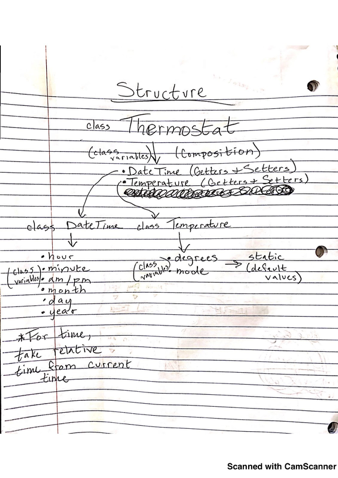 Structure
class Thermostat
(class variables) (Composition)
• DateTime (Getters + Setters)
• Temperature (Getters + Setters)
class DateTime class Temperature
• hour
• minute
• am/pm
• month
• day
• year
(class variables)
• degrees
• mode
(class variables)
→ static
(default
values)
* For time,
take relative
time from current
time
Scanned with CamScanner